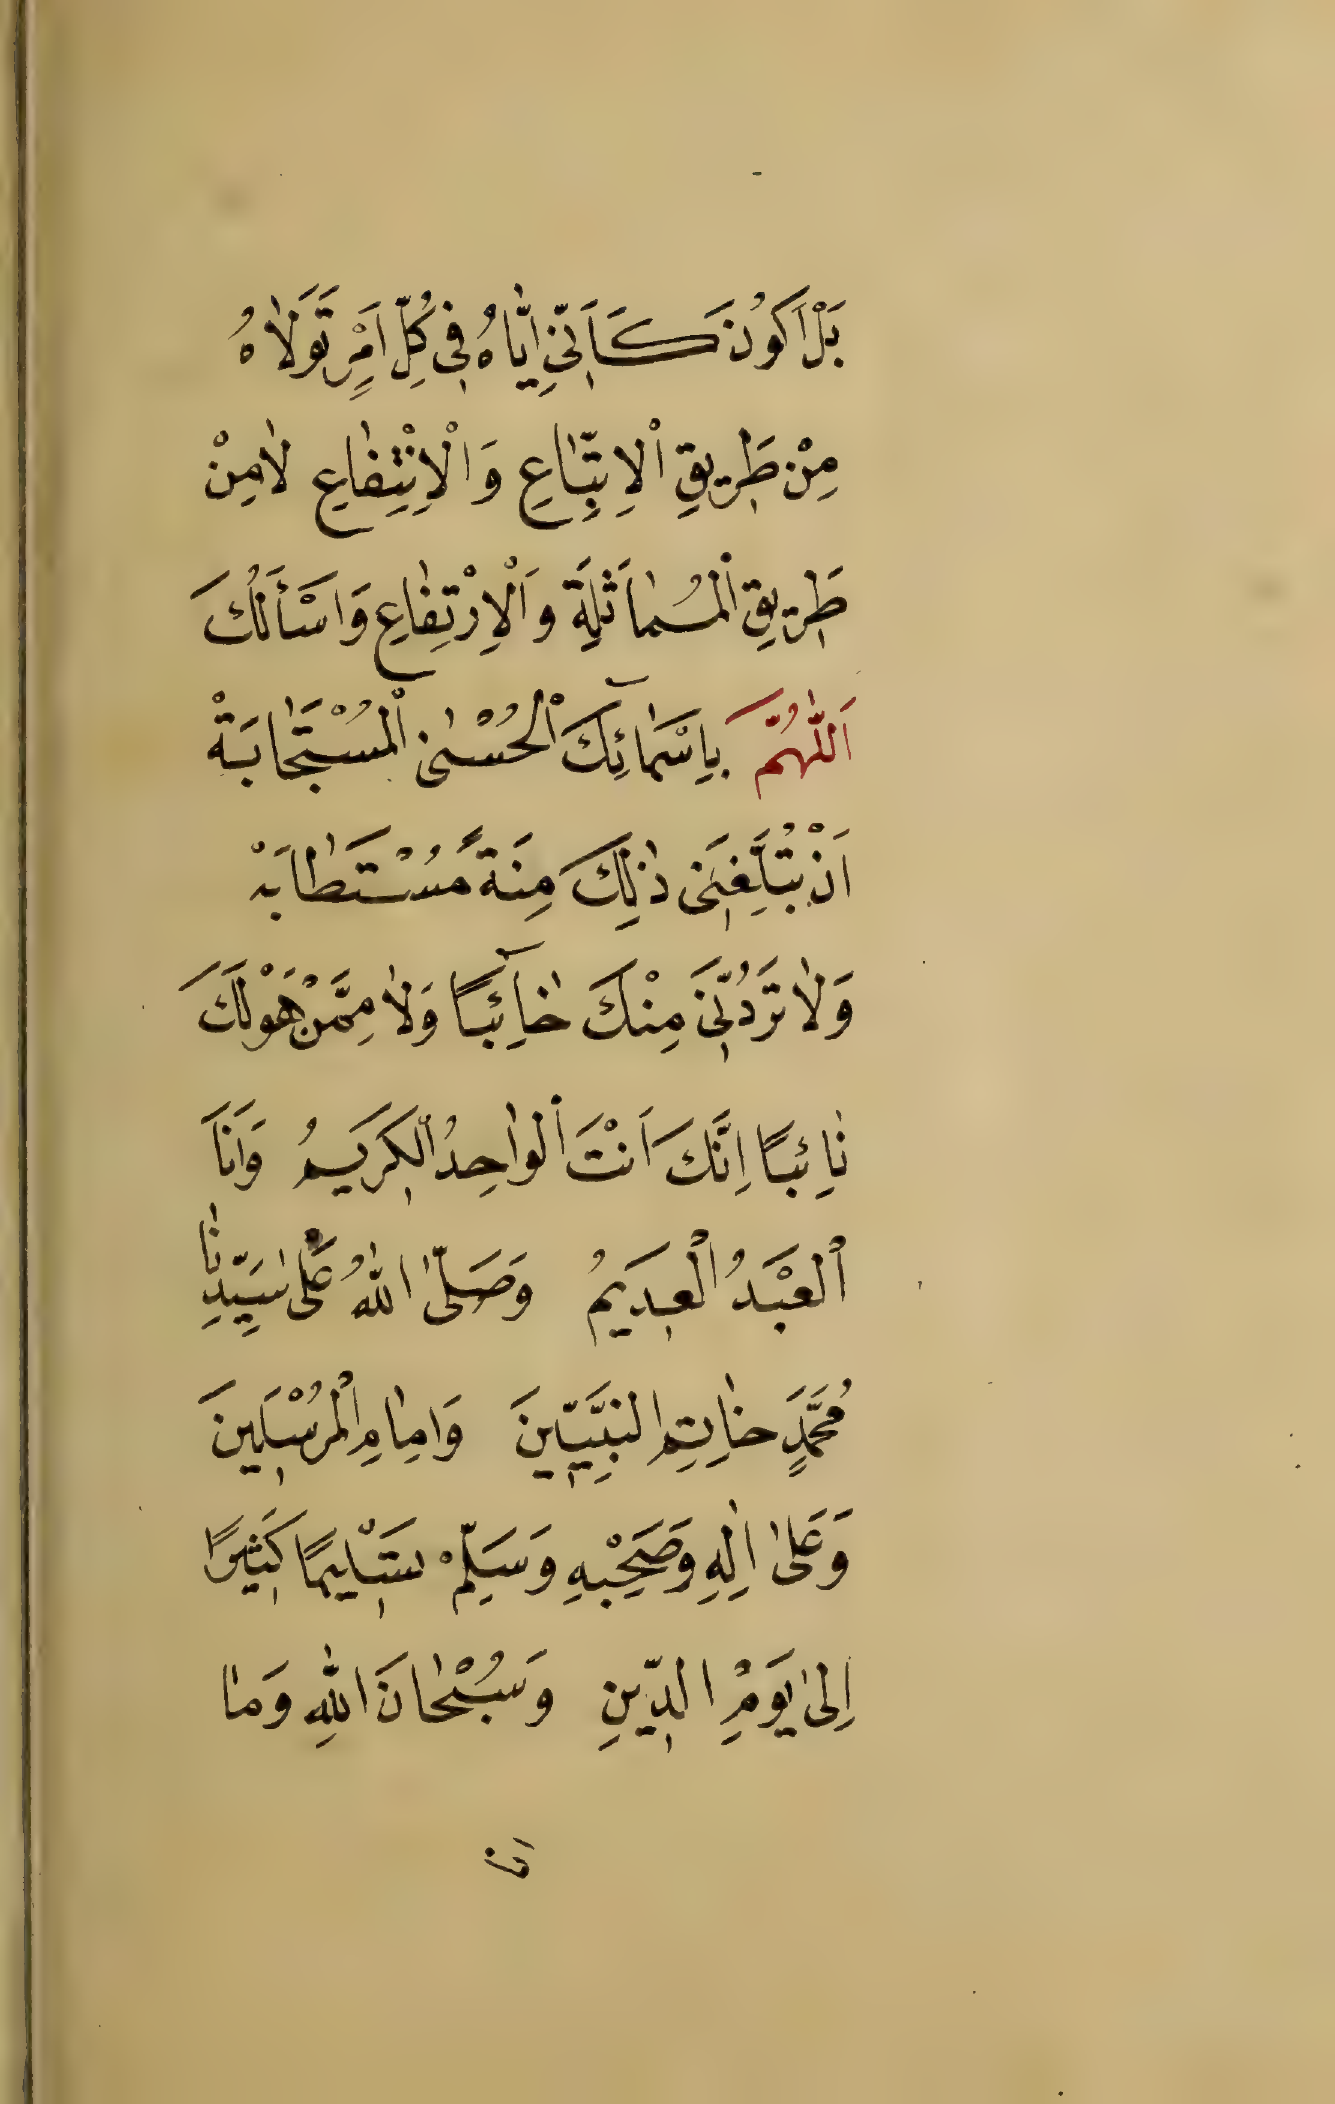 بَلْ اَكُونُ كَاَنِّي اِيَّاهُ فِي كُلِّ اَمْرٍ تَوَلَاهُ
مِنْ طَرِيقِ الْاِتِّبَاعِ وَالْاِنْتِفَاعِ لَا مِنْ
طَرِيقِ الْمُمَاثَلَةِ وَالْاِرْتِفَاعِ وَاَسْأَلُكَ
اَللّٰهُمَّ بِاِسْمَائِكَ الْحُسْنٰى الْمُسْتَجَابَةْ
اَنْ تُبَلِّغَنِى ذٰلِكَ مِنَةً مُسْتَطَابَةْ
وَلَا تَرُدَّنِّى مِنْكَ خَآئِبًا وَلَا مِمَّنْ هُوَ لَكَ
نَائِبًا اِنَّكَ اَنْتَ الْوَاحِدُ الْكَرِيمُ وَاَنَا
الْعَبْدُ الْعَدِيمُ وَصَلَّى اللّٰهُ عَلٰى سَيِّدِنَا
مُحَمَّدٍ خَاتِمِ النَّبِيِّينَ وَاِمَامِ الْمُرْسَلِينَ
وَعَلٰى اٰلِهِ وَصَحْبِهِ وَسَلِّمْ تَسْلِيمًا كَثِيرًا
اِلٰى يَوْمِ الدِّينِ وَسُبْحَانَ اللّٰهِ وَمَا